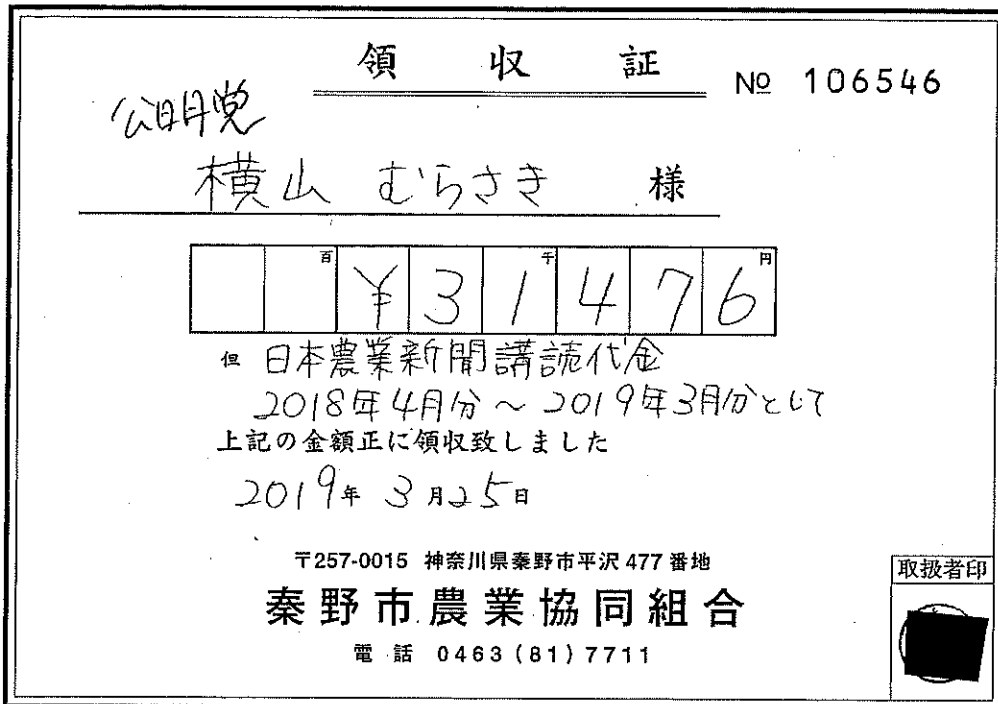 領収証
№ 106546
公明党
横山 むらさき 様
百 千 円
¥31476
但 日本農業新聞講読代金
2018年4月分～2019年3月分として
上記の金額正に領収致しました
2019年 3月25日
〒257-0015 神奈川県秦野市平沢477番地
秦野市農業協同組合
電話 0463(81)7711
取扱者印